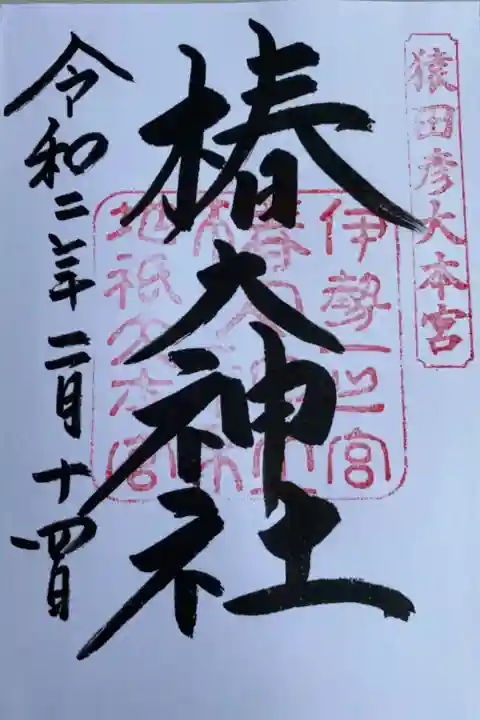 猿田彦大本宮
椿大神社
伊勢一之宮
地祇大本宮
令和二年二月十四日